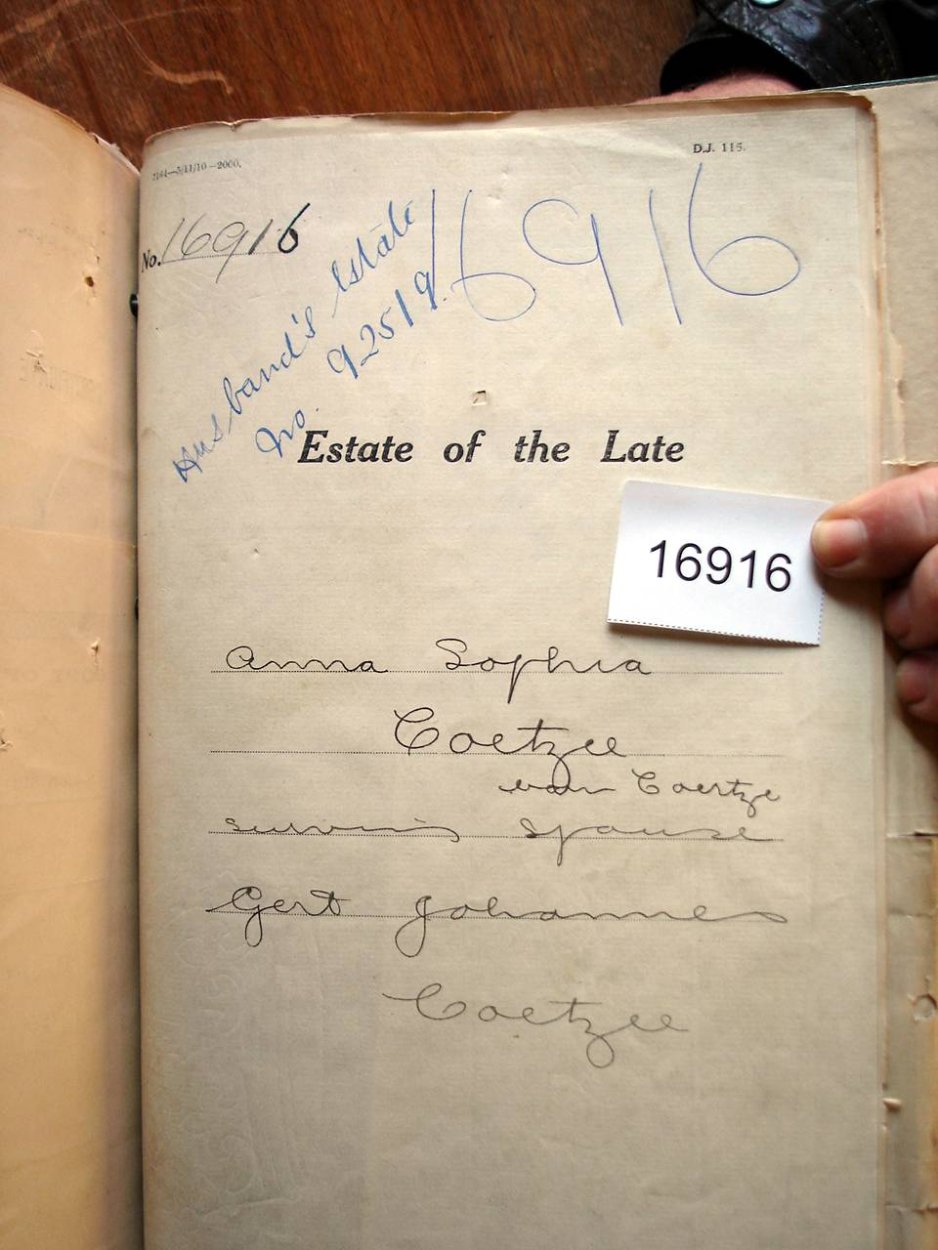 7164—3/11/10—2000.
D.J. 115.
No. 16916
16916
Husband's Estate
No. 92519
Estate of the Late
16916
Anna Sophia
Coetzee
van Coertze
surviving Spouse
Gert Johannes
Coetzee